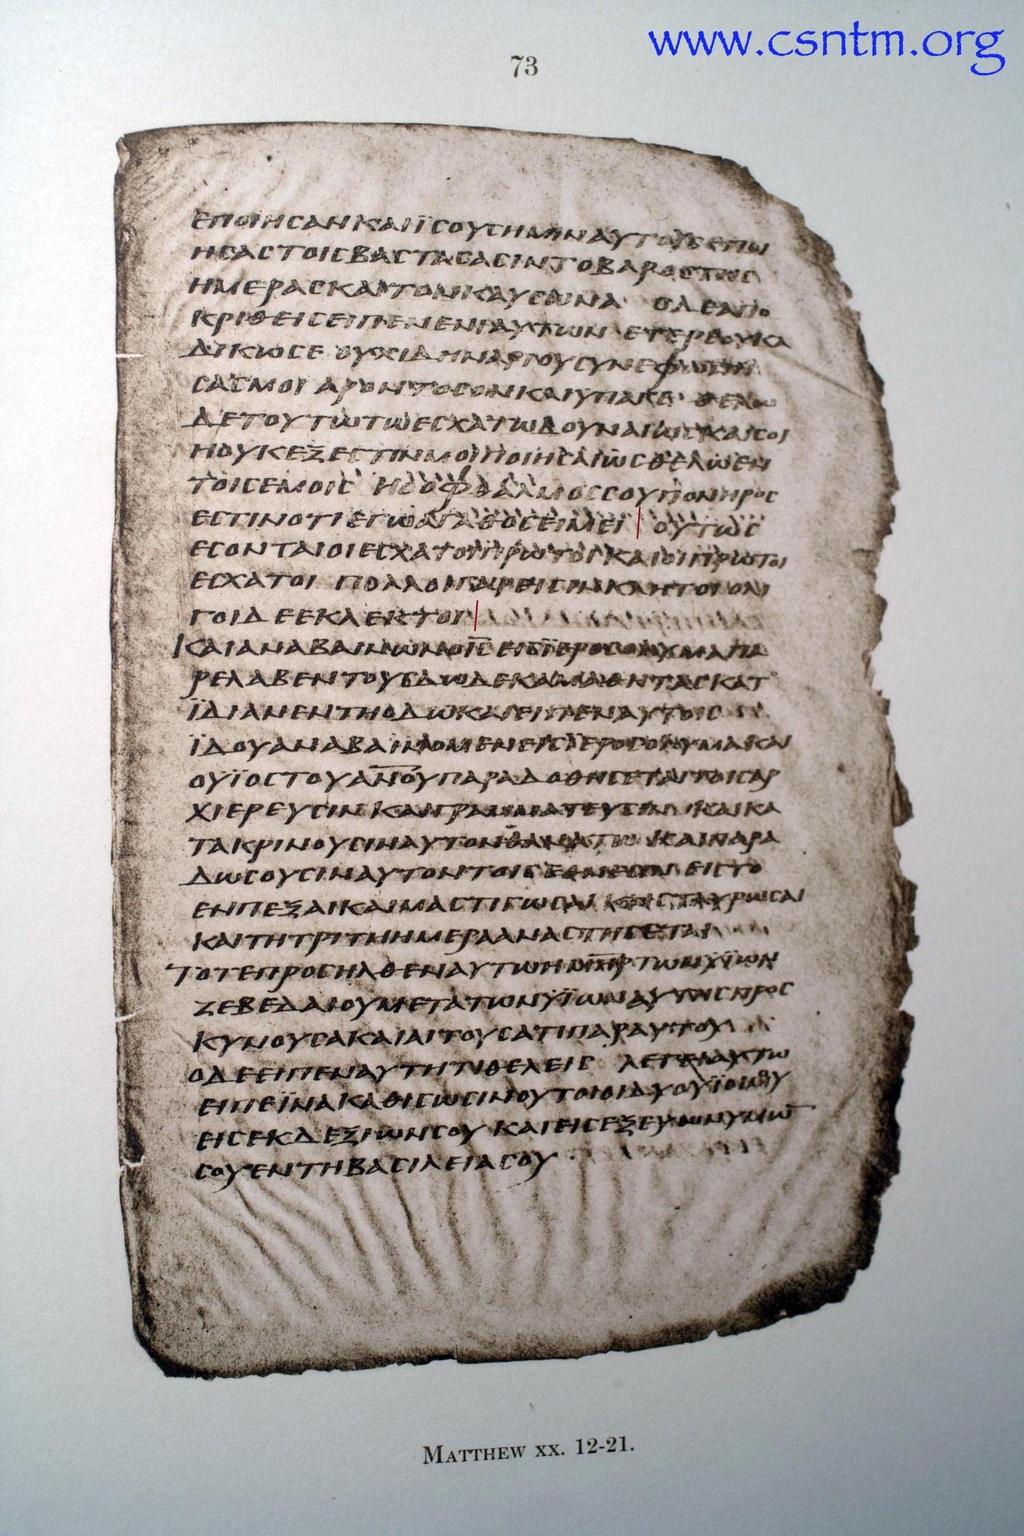 www.csntm.org
73
ΕΠΟΙΗϹΑΝΚΑΙΪϹΟΥϹΗΜΙΝΑΥΤΟΥϹΕΠΟΙ
ΗϹΑϹΤΟΙϹΒΑϹΤΑϹΑϹΙΝΤΟΒΑΡΟϹΤΗϹ
ΗΜΕΡΑϹΚΑΙΤΟΝΚΑΥϹΩΝΑ ΟΔΕΑΠΟ
ΚΡΙΘΕΙϹΕΙΠΕΝΕΝΙΑΥΤΩΝ ΕΤΕΡΕΟΥΚΑ
ΔΙΚΩϹΕ ΟΥΧΙΔΗΝΑΡΙΟΥϹΥΝΕΦΩΝΗ
ϹΑϹΜΟΙ ΑΡΟΝΤΟϹΟΝΚΑΙΥΠΑΓΕ ΘΕΛΩ
ΔΕΤΟΥΤΩΤΩΕϹΧΑΤΩΔΟΥΝΑΙΩϹΚΑΙϹΟΙ
ΗΟΥΚΕΞΕϹΤΙΝΜΟΙΠΟΙΗϹΑΙΩϹΘΕΛΩΕΝ
ΤΟΙϹΕΜΟΙϹ ΗΟΟΦΘΑΛΜΟϹϹΟΥΠΟΝΗΡΟϹ
ΕϹΤΙΝΟΤΙΕΓΩΑΓΑΘΟϹΕΙΜΕΙ ΟΥΤΩϹ
ΕϹΟΝΤΑΙΟΙΕϹΧΑΤΟΙΠΡΩΤΟΙΚΑΙΟΙΠΡΩΤΟΙ
ΕϹΧΑΤΟΙ ΠΟΛΛΟΙΓΑΡΕΙϹΙΝΚΛΗΤΟΙΟΛΙ
ΓΟΙΔΕΕΚΛΕΚΤΟΙ
ΚΑΙΑΝΑΒΑΙΝΩΝΟΙ̅Ϲ̅ΕΙϹΪΕΡΟϹΟΛΥΜΑΠΑ
ΡΕΛΑΒΕΝΤΟΥϹΔΩΔΕΚΑΜΑΘΗΤΑϹΚΑΤ
ΪΔΙΑΝΕΝΤΗΟΔΩΚΑΙΕΙΠΕΝΑΥΤΟΙϹ
ΪΔΟΥΑΝΑΒΑΙΝΟΜΕΝΕΙϹΪΕΡΟϹΟΛΥΜΑΚΑΙ
ΟΥΪΟϹΤΟΥΑ̅Ν̅Ο̅Υ̅ΠΑΡΑΔΟΘΗϹΕΤΑΙΤΟΙϹΑΡ
ΧΙΕΡΕΥϹΙΝΚΑΙΓΡΑΜΜΑΤΕΥϹΙΝ ΚΑΙΚΑ
ΤΑΚΡΙΝΟΥϹΙΝΑΥΤΟΝΘΑΝΑΤΩ ΚΑΙΠΑΡΑ
ΔΩϹΟΥϹΙΝΑΥΤΟΝΤΟΙϹΕΘΝΕϹΙΝ ΕΙϹΤΟ
ΕΝΠΕΞΑΙΚΑΙΜΑϹΤΙΓΩϹΑΙ ΚΑΙϹΤΑΥΡΩϹΑΙ
ΚΑΙΤΗΤΡΙΤΗΗΜΕΡΑΑΝΑϹΤΗϹΕΤΑΙ
ΤΟΤΕΠΡΟϹΗΛΘΕΝΑΥΤΩΗΜ̅Η̅Ρ̅ΤΩΝΥΪΩΝ
ΖΕΒΕΔΑΙΟΥΜΕΤΑΤΩΝΥΪΩΝΑΥΤΗϹΠΡΟϹ
ΚΥΝΟΥϹΑΚΑΙΑΙΤΟΥϹΑΤΙΠΑΡΑΥΤΟΥ
ΟΔΕΕΙΠΕΝΑΥΤΗΤΙΘΕΛΕΙϹ ΛΕΓΕΙΑΥΤΩ
ΕΙΠΕΪΝΑΚΑΘΙϹΩϹΙΝΟΥΤΟΙΟΙΔΥΟΥΪΟΙΜΟΥ
ΕΙϹΕΚΔΕΞΙΩΝϹΟΥ ΚΑΙΕΙϹΕΞΕΥΩΝΥΜΩ̅
ϹΟΥΕΝΤΗΒΑϹΙΛΕΙΑϹΟΥ
MATTHEW XX. 12-21.